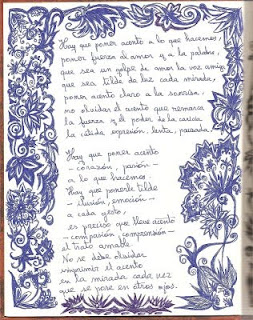 Hay que poner acento a lo que hacemos,
poner fuerza al amor y a la palabra,
que sea un golpe de amor la voz amiga
que sea tilde de luz cada mirada,
poner acento claro a la sonrisa.
no olvidar el acento que remarca
la fuerza y el poder de la caricia
la cálida expresión, lenta, pausada.
Hay que poner acento
- corazón, pasión -
a lo que hacemos
Hay que ponerle tilde
- ilusión, emoción -
a cada gesto,
es preciso que lleve acento
- compasión, comprensión -
el trato amable.
No se debe olvidar
imprimir el acento
en la mirada cada vez
que se pose en otros ojos.